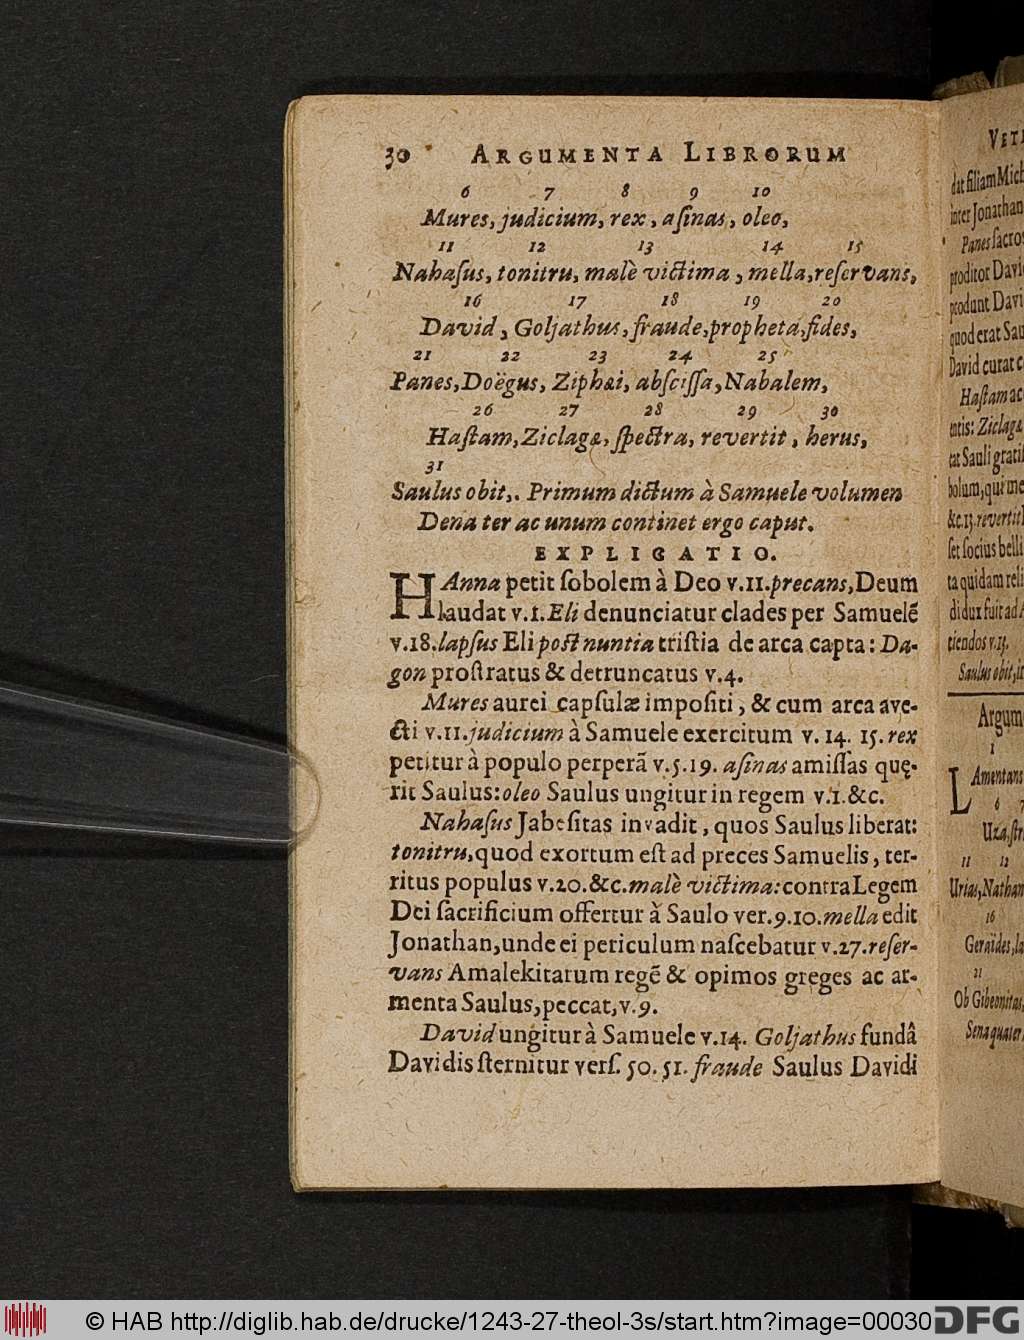 30 ARGUMENTA LIBRORUM
6 7 8 9 10
Mures, judicium, rex, aſinas, oleo,
11 12 13 14 15
Nahaſus, tonitru, malè victima, mella, reſervans,
16 17 18 19 20
David, Goljathus, fraude, propheta, fides,
21 22 23 24 25
Panes, Doëgus, Ziphæi, abſciſſa, Nabalem,
26 27 28 29 30
Haſtam, Ziclagæ, ſpectra, revertit, herus,
31
Saulus obit,. Primum dictum à Samuele volumen
Dena ter ac unum continet ergo caput.
EXPLICATIO.
HAnna petit ſobolem à Deo v.11. precans, Deum
laudat v.1. Eli denunciatur clades per Samuelē
v.18. lapſus Eli post nuntia triſtia de arca capta: Da-
gon proſtratus & detruncatus v.4.
Mures aurei capſulæ impoſiti, & cum arca ave-
cti v.11. judicium à Samuele exercitum v. 14. 15. rex
petitur à populo perperā v.5.19. aſinas amiſſas quę-
rit Saulus: oleo Saulus ungitur in regem v.1. &c.
Nahaſus Jabeſitas invadit, quos Saulus liberat:
tonitru, quod exortum eſt ad preces Samuelis, ter-
ritus populus v.20. &c. malè victima: contra Legem
Dei ſacrificium offertur à Saulo ver.9.10. mella edit
Jonathan, unde ei periculum naſcebatur v.27. reſer-
vans Amalekitarum regē & opimos greges ac ar-
menta Saulus, peccat, v.9.
David ungitur à Samuele v.14. Goljathus fundâ
Davidis ſternitur verſ. 50. 51. fraude Saulus Davidi
dat filiam Mich
inter Jonathan
Panes ſacros
proditor Davi
produnt Davi
quod erat Sau
David curat c
Haſtam ac
entis: Ziclagæ
tat Sauli grati
bolum, qui me
&c.13. revertit
ſet ſocius belli
ta quidam reli
di dux fuit ad A
tiendos v.15.
Saulus obit, it
Argum
1
LAmentans
6 7
Uza, ſtr
11 12
Urias, Nathan
16
Geraïdes, la
21
Ob Gibeonitas,
Sena quater
© HAB http://diglib.hab.de/drucke/1243-27-theol-3s/start.htm?image=00030 DFG